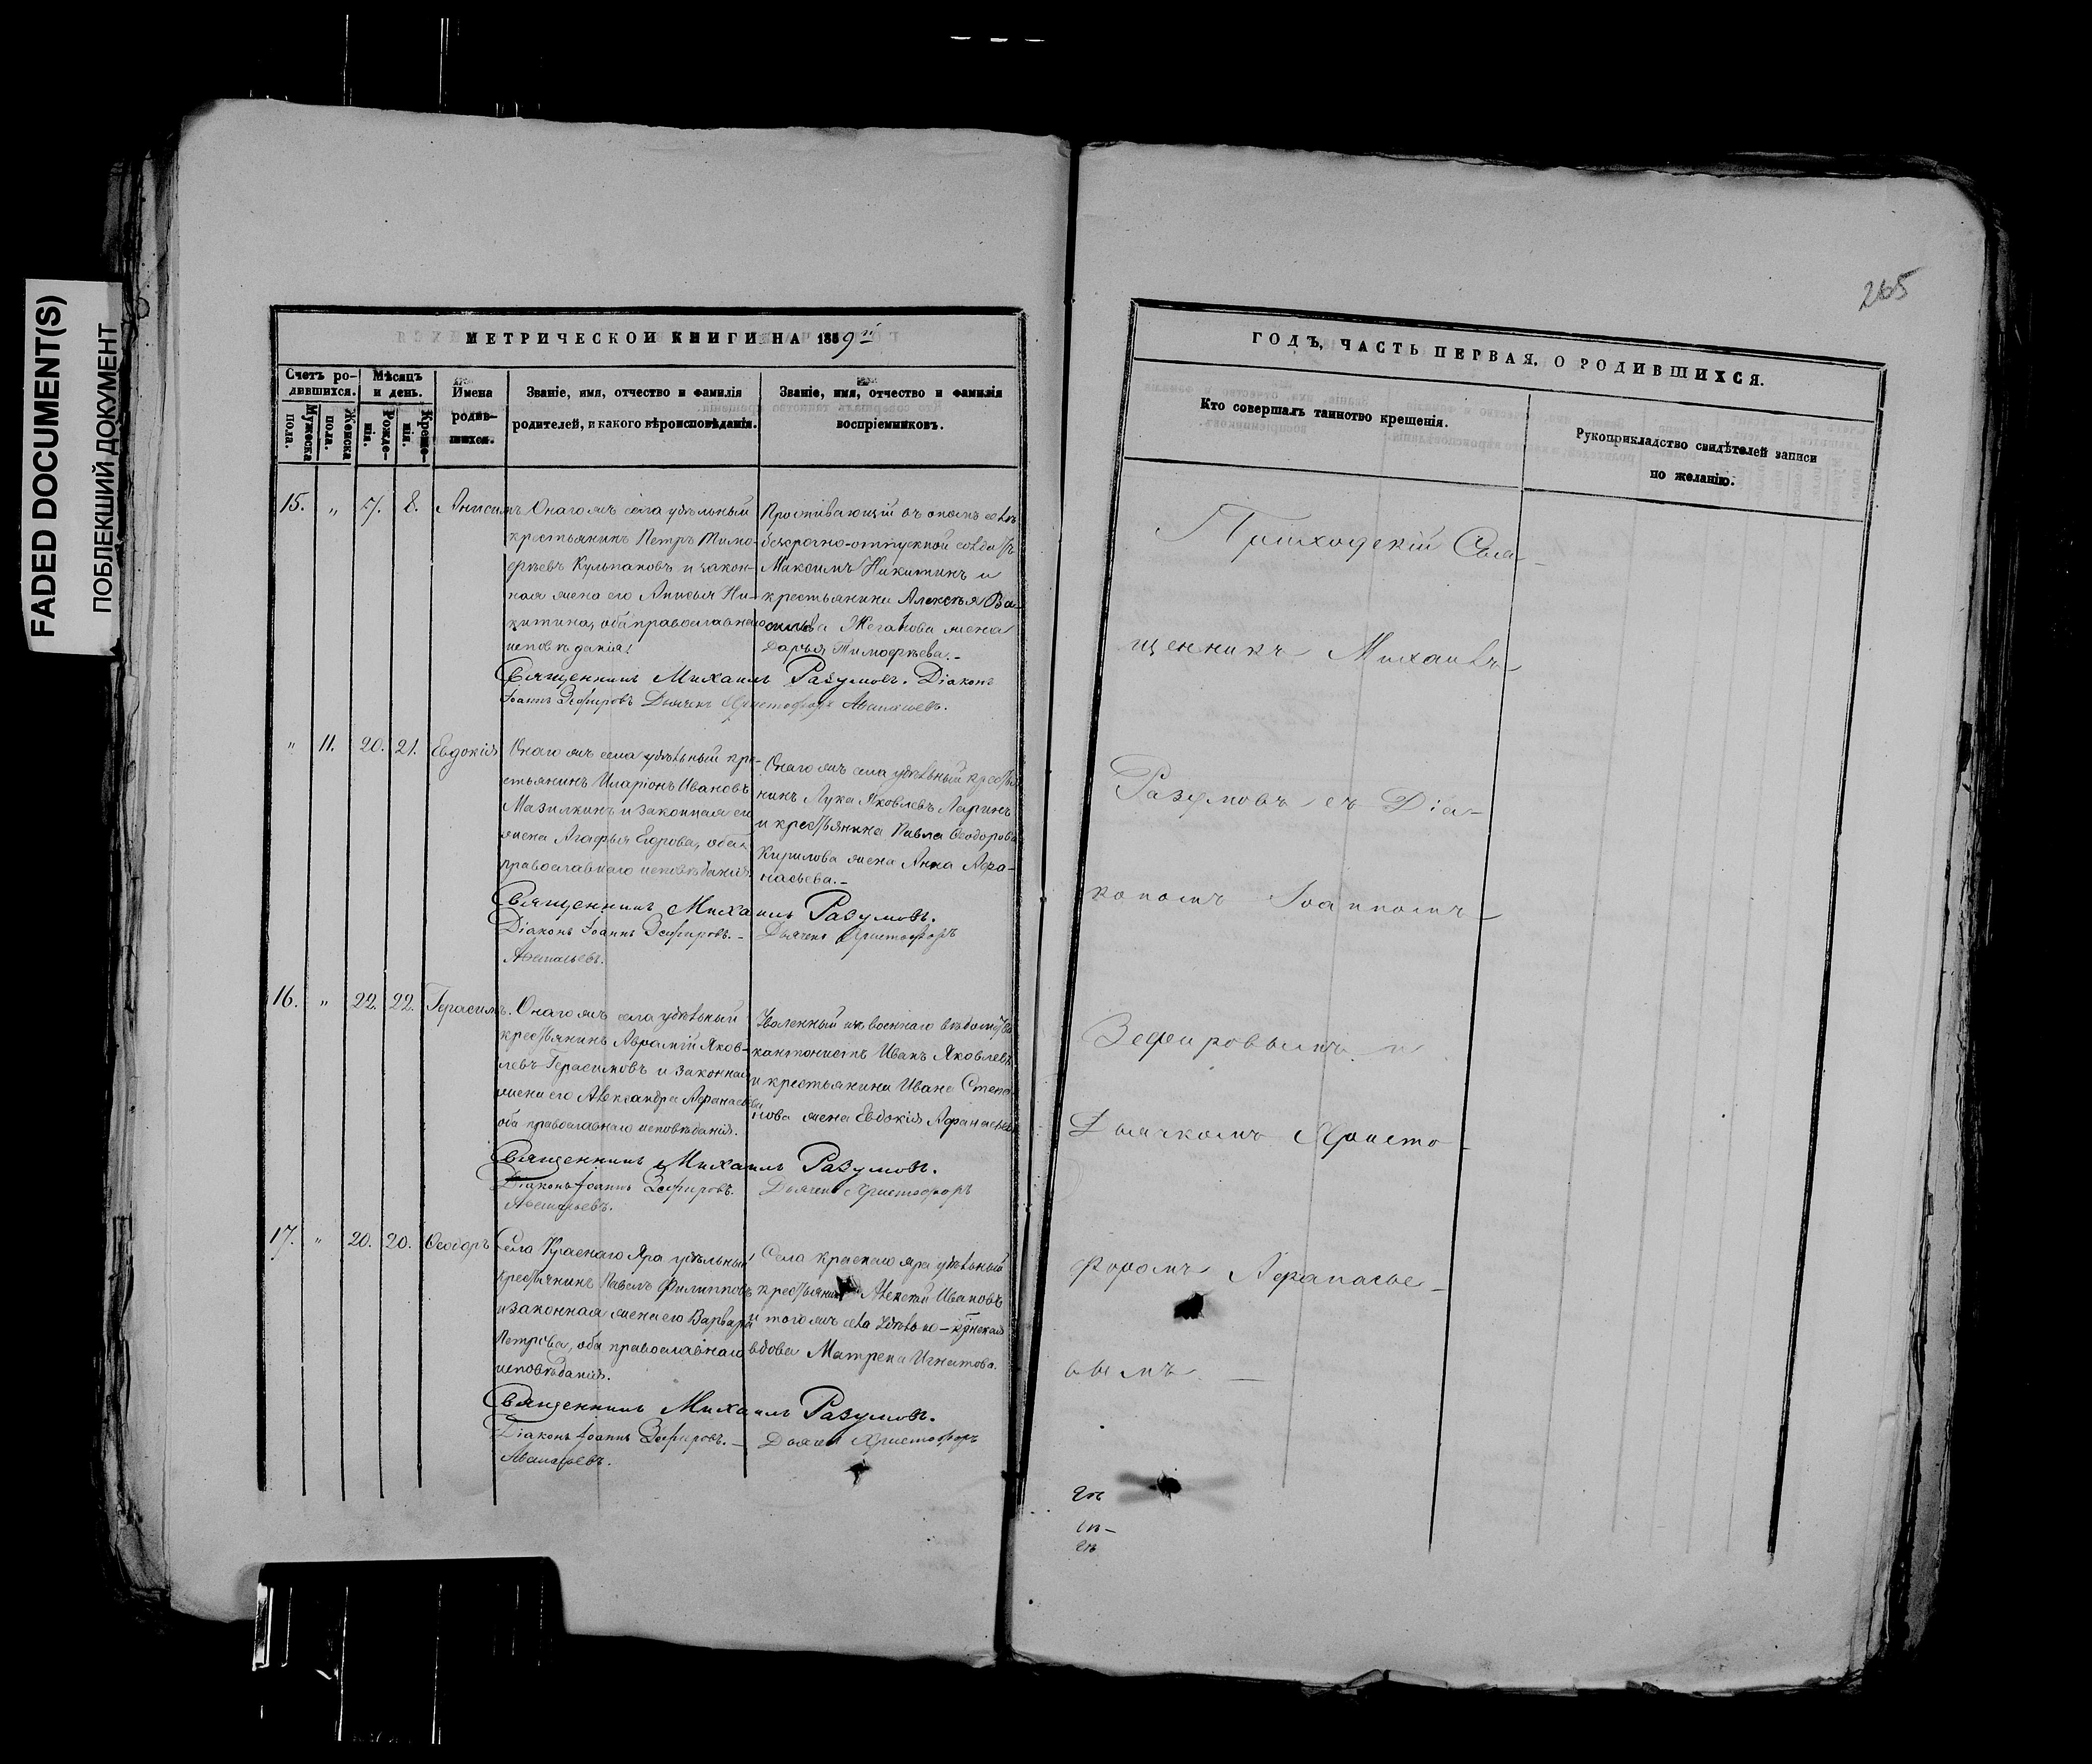 FADED DOCUMENT(S)
ПОБЛЕКШИЙ ДОКУМЕНТ
265
МЕТРИЧЕСКОЙ КНИГИ НА 1859й
Счетъ ро-
дившихся.
Мужеска
пола.
Женска
пола.
Мѣсяцъ
и день.
Рожде-
нія.
Креще-
нія.
Имена
родив-
шихся.
Званіе, имя, отчество и фамилія
родителей, и какого вѣроисповѣданія.
Званіе, имя, отчество и фамилія
воспріемниковъ.
15. „ 7. 8. Анисимъ
Онагожъ села удѣльный
крестьянинъ Петръ Тимо-
фѣевъ Кульпановъ и закон-
ная жена его Анисья Ни-
китина, оба православнаго
исповѣданія.
Проживающій въ ономъ селѣ
безсрочно-отпускной солдатъ
Максимъ Никитинъ и
крестьянина Алексѣя Ва-
сильева Жеганова жена
Дарья Тимофѣева.-
Священникъ Михаилъ Разумовъ. Діаконъ
Іоаннъ Зефировъ Дьячекъ Христофоръ Аѳанасьевъ.
„ 11. 20. 21. Евдокія
Онагожъ села удѣльный кре-
стьянинъ Иларіонъ Ивановъ
Мазилкинъ и законная его
жена Агафья Егорова, оба
православнаго исповѣданія.
Онагожъ села удѣльный крестья-
нинъ Лука Яковлевъ Ларинъ
и крестьянина Павла Ѳеодорова
Кирилова жена Анна Афа-
насьева.-
Священникъ Михаилъ Разумовъ.
Діаконъ Іоаннъ Зефировъ.- Дьячекъ Христофоръ
Аѳанасьевъ.
16. „ 22. 22. Герасимъ.
Онагожъ села удѣльный
крестьянинъ Аврамій Яков-
левъ Герасимовъ и законная
жена его Александра Афанасьева
оба православнаго исповѣданія.
Уволенный изъ военнаго вѣдомства
кантонистъ Иванъ Яковлевъ
и крестьянина Ивана Степа-
нова жена Евдокія Афанасьева
Священникъ Михаилъ Разумовъ.
Діаконъ Іоаннъ Зефировъ. Дьячекъ Христофоръ
Аѳанасьевъ.
17. „ 20. 20. Ѳеодоръ
Села Краснаго Яра удѣльный
крестьянинъ Павелъ Филипповъ
и законная жена его Варвара
Петрова, оба православнаго
исповѣданія.
Села краснаго яра удѣльный
крестьянинъ Алексѣй Ивановъ
и тогожъ села
вдова Матрена Игнатова.
Священникъ Михаилъ Разумовъ.
Діаконъ Іоаннъ Зефировъ.- Дьячекъ Христофоръ
Аѳанасьевъ.
ГОДЪ, ЧАСТЬ ПЕРВАЯ, О РОДИВШИХСЯ.
Кто совершалъ таинство крещенія.
Рукоприкладство свидѣтелей записи
по желанію.
Приходскій Свя-
щенникъ Михаилъ
Разумовъ съ Діа-
кономъ Іоанномъ
Зефировымъ и
Дьячкомъ Христо-
форомъ Афанасье-
вымъ. —